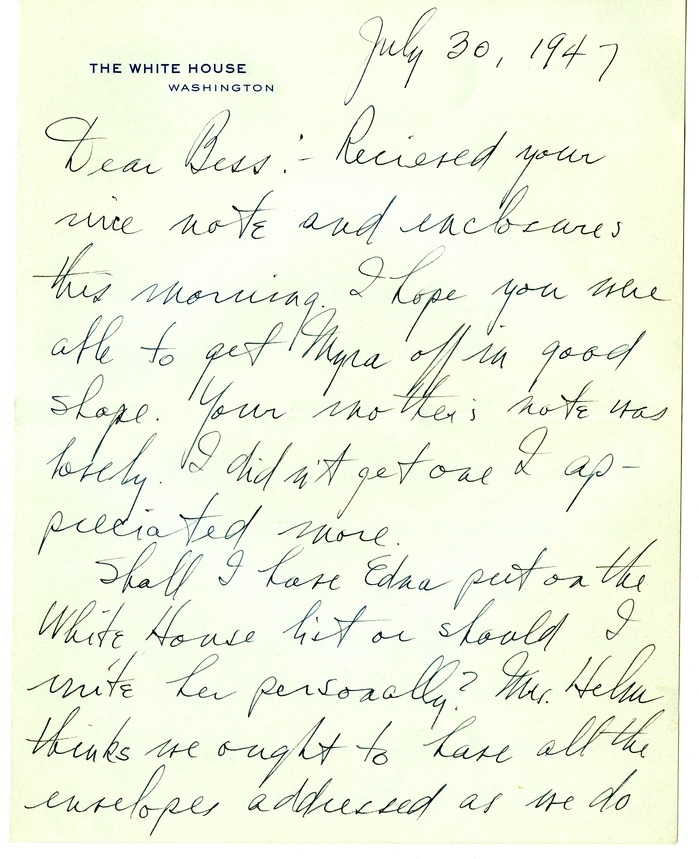 July 30, 1947
THE WHITE HOUSE
WASHINGTON
Dear Bess:- Recieved your
nice note and enclosures
this morning. I hope you were
able to get Myra off in good
shape. Your mother's note was
lovely. I didn't get one I ap-
preciated more.
Shall I have Edna put on the
White House list or should I
write her personally? Mrs. Helm
thinks we ought to have all the
envelopes addressed as we do